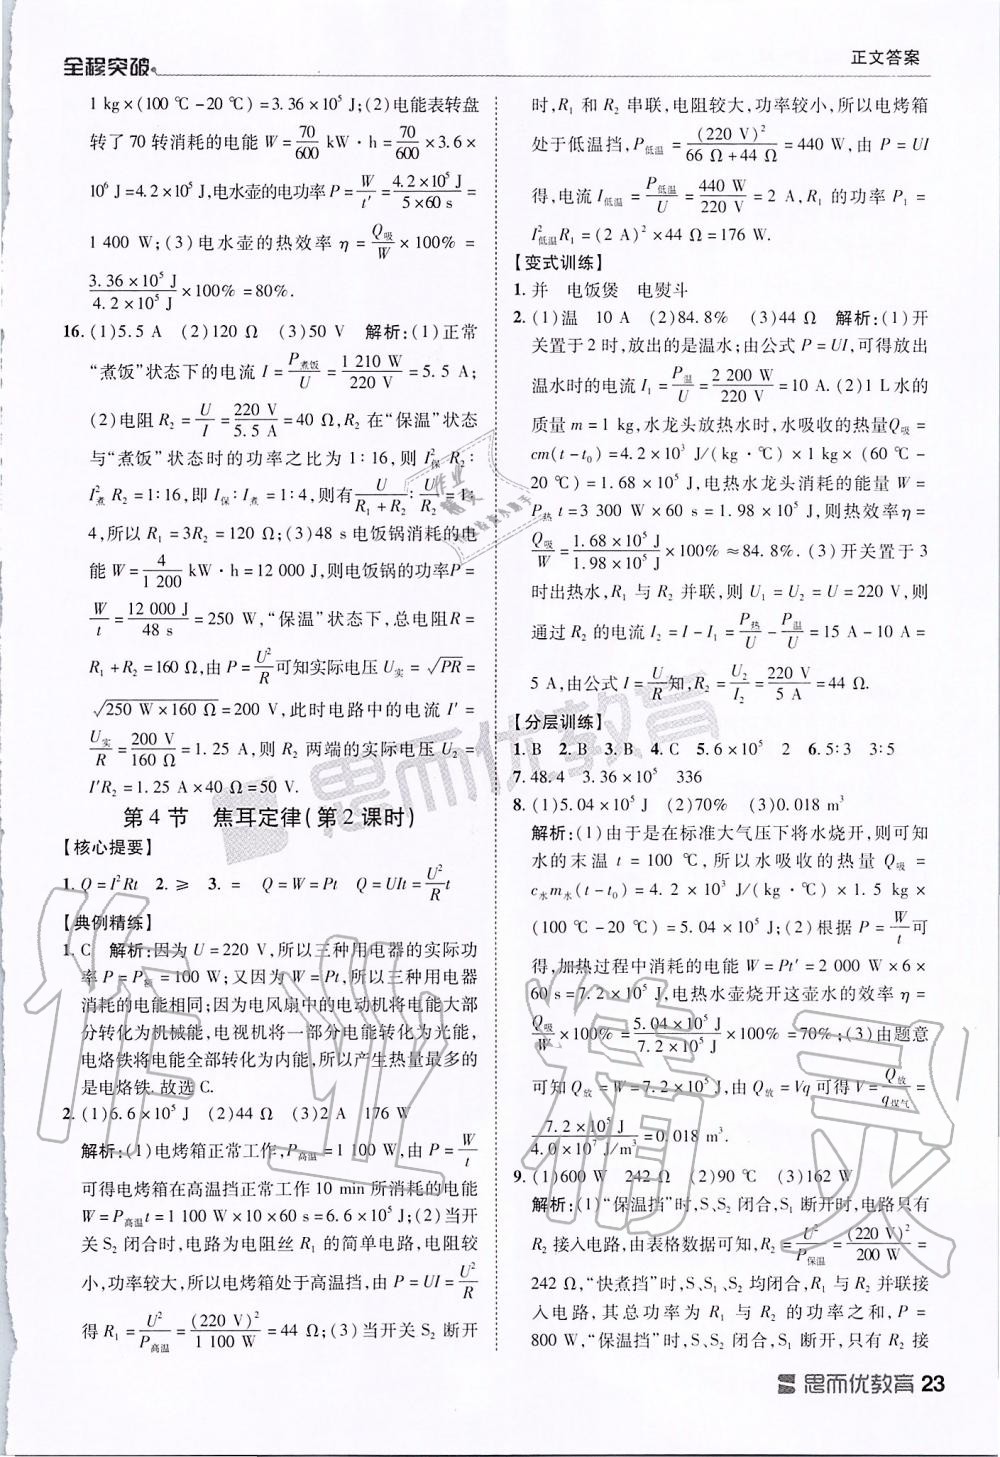 全程突破
正文答案
1 kg×(100 ℃-20 ℃)=3.36×10⁵ J;(2)电能表转盘
转了 70 转消耗的电能 W=70/600 kW·h=70/600×3.6×
10⁶ J=4.2×10⁵ J,电水壶的电功率 P=W/t′=4.2×10⁵ J/5×60 s=
1 400 W;(3)电水壶的热效率 η=Q吸/W×100%=
3.36×10⁵ J/4.2×10⁵ J×100%=80%.
16. (1)5.5 A (2)120 Ω (3)50 V 解析:(1)正常
“煮饭”状态下的电流 I=P煮饭/U=1 210 W/220 V=5.5 A;
(2)电阻 R₂=U/I=220 V/5.5 A=40 Ω,R₂ 在“保温”状态
与“煮饭”状态时的功率之比为 1∶16,则 I²保 R₂∶
I²煮 R₂=1∶16,即 I保∶I煮=1∶4,则有 U/(R₁+R₂)∶U/R₂=1∶
4,所以 R₁=3R₂=120 Ω;(3)48 s 电饭锅消耗的电
能 W=4/1 200 kW·h=12 000 J,则电饭锅的功率P=
W/t=12 000 J/48 s=250 W,“保温”状态下,总电阻R=
R₁+R₂=160 Ω,由 P=U²/R可知实际电压 U实=√PR=
√250 W×160 Ω=200 V,此时电路中的电流 I′=
U实/R=200 V/160 Ω=1.25 A,则 R₂ 两端的实际电压 U₂=
I′R₂=1.25 A×40 Ω=50 V.
第 4 节 焦耳定律(第 2 课时)
【核心提要】
1. Q=I²Rt 2. ≥ 3. = Q=W=Pt Q=UIt=U²/R t
【典例精练】
1. C 解析:因为 U=220 V,所以三种用电器的实际功
率 P=P额=100 W;又因为 W=Pt,所以三种用电器
消耗的电能相同;因为电风扇中的电动机将电能大部
分转化为机械能,电视机将一部分电能转化为光能,
电烙铁将电能全部转化为内能,所以产生热量最多的
是电烙铁. 故选 C.
2. (1)6.6×10⁵ J (2)44 Ω (3)2 A 176 W
解析:(1)电烤箱正常工作,P高温=1 100 W,由 P=W/t
可得电烤箱在高温挡正常工作 10 min 所消耗的电能
W=P高温t=1 100 W×10×60 s=6.6×10⁵ J;(2)当开
关 S₂ 闭合时,电路为电阻丝 R₁ 的简单电路,电阻较
小,功率较大,所以电烤箱处于高温挡,由 P=UI=U²/R
得 R₁=U²/P高温=(220 V)²/1 100 W=44 Ω;(3)当开关 S₂ 断开
时,R₁ 和 R₂ 串联,电阻较大,功率较小,所以电烤箱
处于低温挡,P低温=(220 V)²/(66 Ω+44 Ω)=440 W,由 P=UI
得,电流 I低温=P低温/U=440 W/220 V=2 A,R₁ 的功率 P₁=
I²低温R₁=(2 A)²×44 Ω=176 W.
【变式训练】
1. 并 电饭煲 电熨斗
2. (1)温 10 A (2)84.8% (3)44 Ω 解析:(1)开
关置于 2 时,放出的是温水;由公式 P=UI,可得放出
温水时的电流 I₁=P温/U=2 200 W/220 V=10 A. (2)1 L水的
质量 m=1 kg,水龙头放热水时,水吸收的热量Q吸=
cm(t-t₀)=4.2×10³ J/(kg·℃)×1 kg×(60 ℃-
20 ℃)=1.68×10⁵ J,电热水龙头消耗的能量 W=
P热 t=3 300 W×60 s=1.98×10⁵ J,则热效率η=
Q吸/W=1.68×10⁵ J/1.98×10⁵ J×100%≈84.8%. (3)开关置于 3
时出热水,R₁ 与 R₂ 并联,则 U₁=U₂=U=220 V,则
通过 R₂ 的电流 I₂=I-I₁=P热/U-P温/U=15 A-10 A=
5 A,由公式 I=U/R知,R₂=U₂/I₂=220 V/5 A=44 Ω.
【分层训练】
1. B 2. B 3. B 4. C 5. 6×10³ 2 6. 5∶3 3∶5
7. 48.4 3.36×10⁵ 336
8. (1)5.04×10⁵ J (2)70% (3)0.018 m³
解析:(1)由于是在标准大气压下将水烧开,则可知
水的末温 t=100 ℃,所以水吸收的热量 Q吸=
c水m水(t-t₀)=4.2×10³ J/(kg·℃)×1.5 kg×
(100 ℃-20 ℃)=5.04×10⁵ J;(2)根据 P=W/t可
得,加热过程中消耗的电能 W=Pt′=2 000 W×6×
60 s=7.2×10⁵ J,电热水壶烧开这壶水的效率 η=
Q吸/W×100%=5.04×10⁵ J/7.2×10⁵ J×100%=70%;(3)由题意
可知 Q放=W=7.2×10⁵ J,由 Q放=Vq 可得 V=Q放/q煤气=
7.2×10⁵ J/4.0×10⁷ J/m³=0.018 m³.
9. (1)600 W 242 Ω (2)90 ℃ (3)162 W
解析:(1)“保温挡”时,S、S₂ 闭合,S₁ 断开时,电路只有
R₂ 接入电路,由表格数据可知,R₂=U²/P保温=(220 V)²/200 W=
242 Ω,“快煮挡”时,S、S₁、S₂ 均闭合,R₁ 与 R₂ 并联接
入电路,其总功率为 R₁ 与 R₂ 的功率之和,P=
800 W,“保温挡”时,S、S₂ 闭合,S₁ 断开,只有 R₂ 接
思而优教育 23
思而优教育
作业精灵